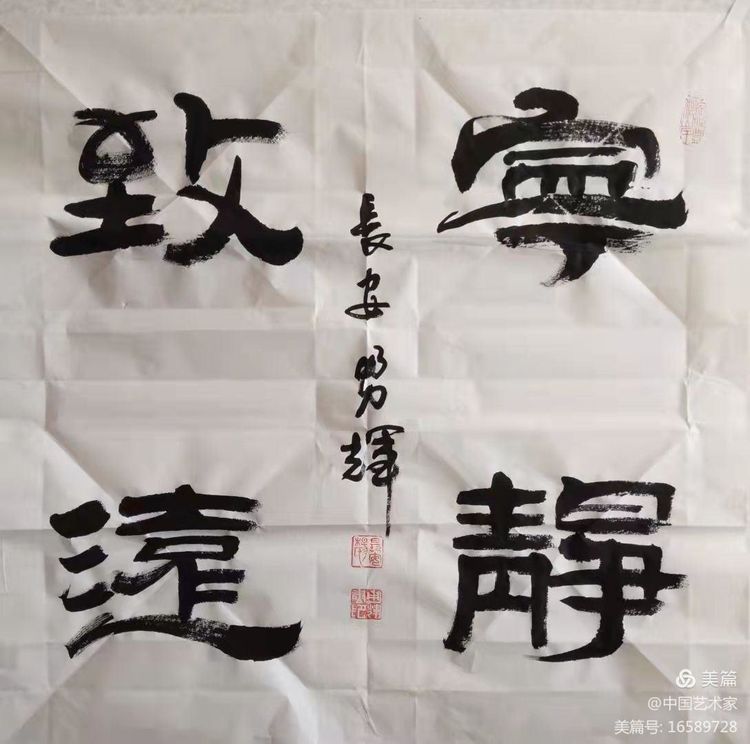 寧靜
致遠
長安
輝
美篇
@中国艺术家
美篇号: 16589728